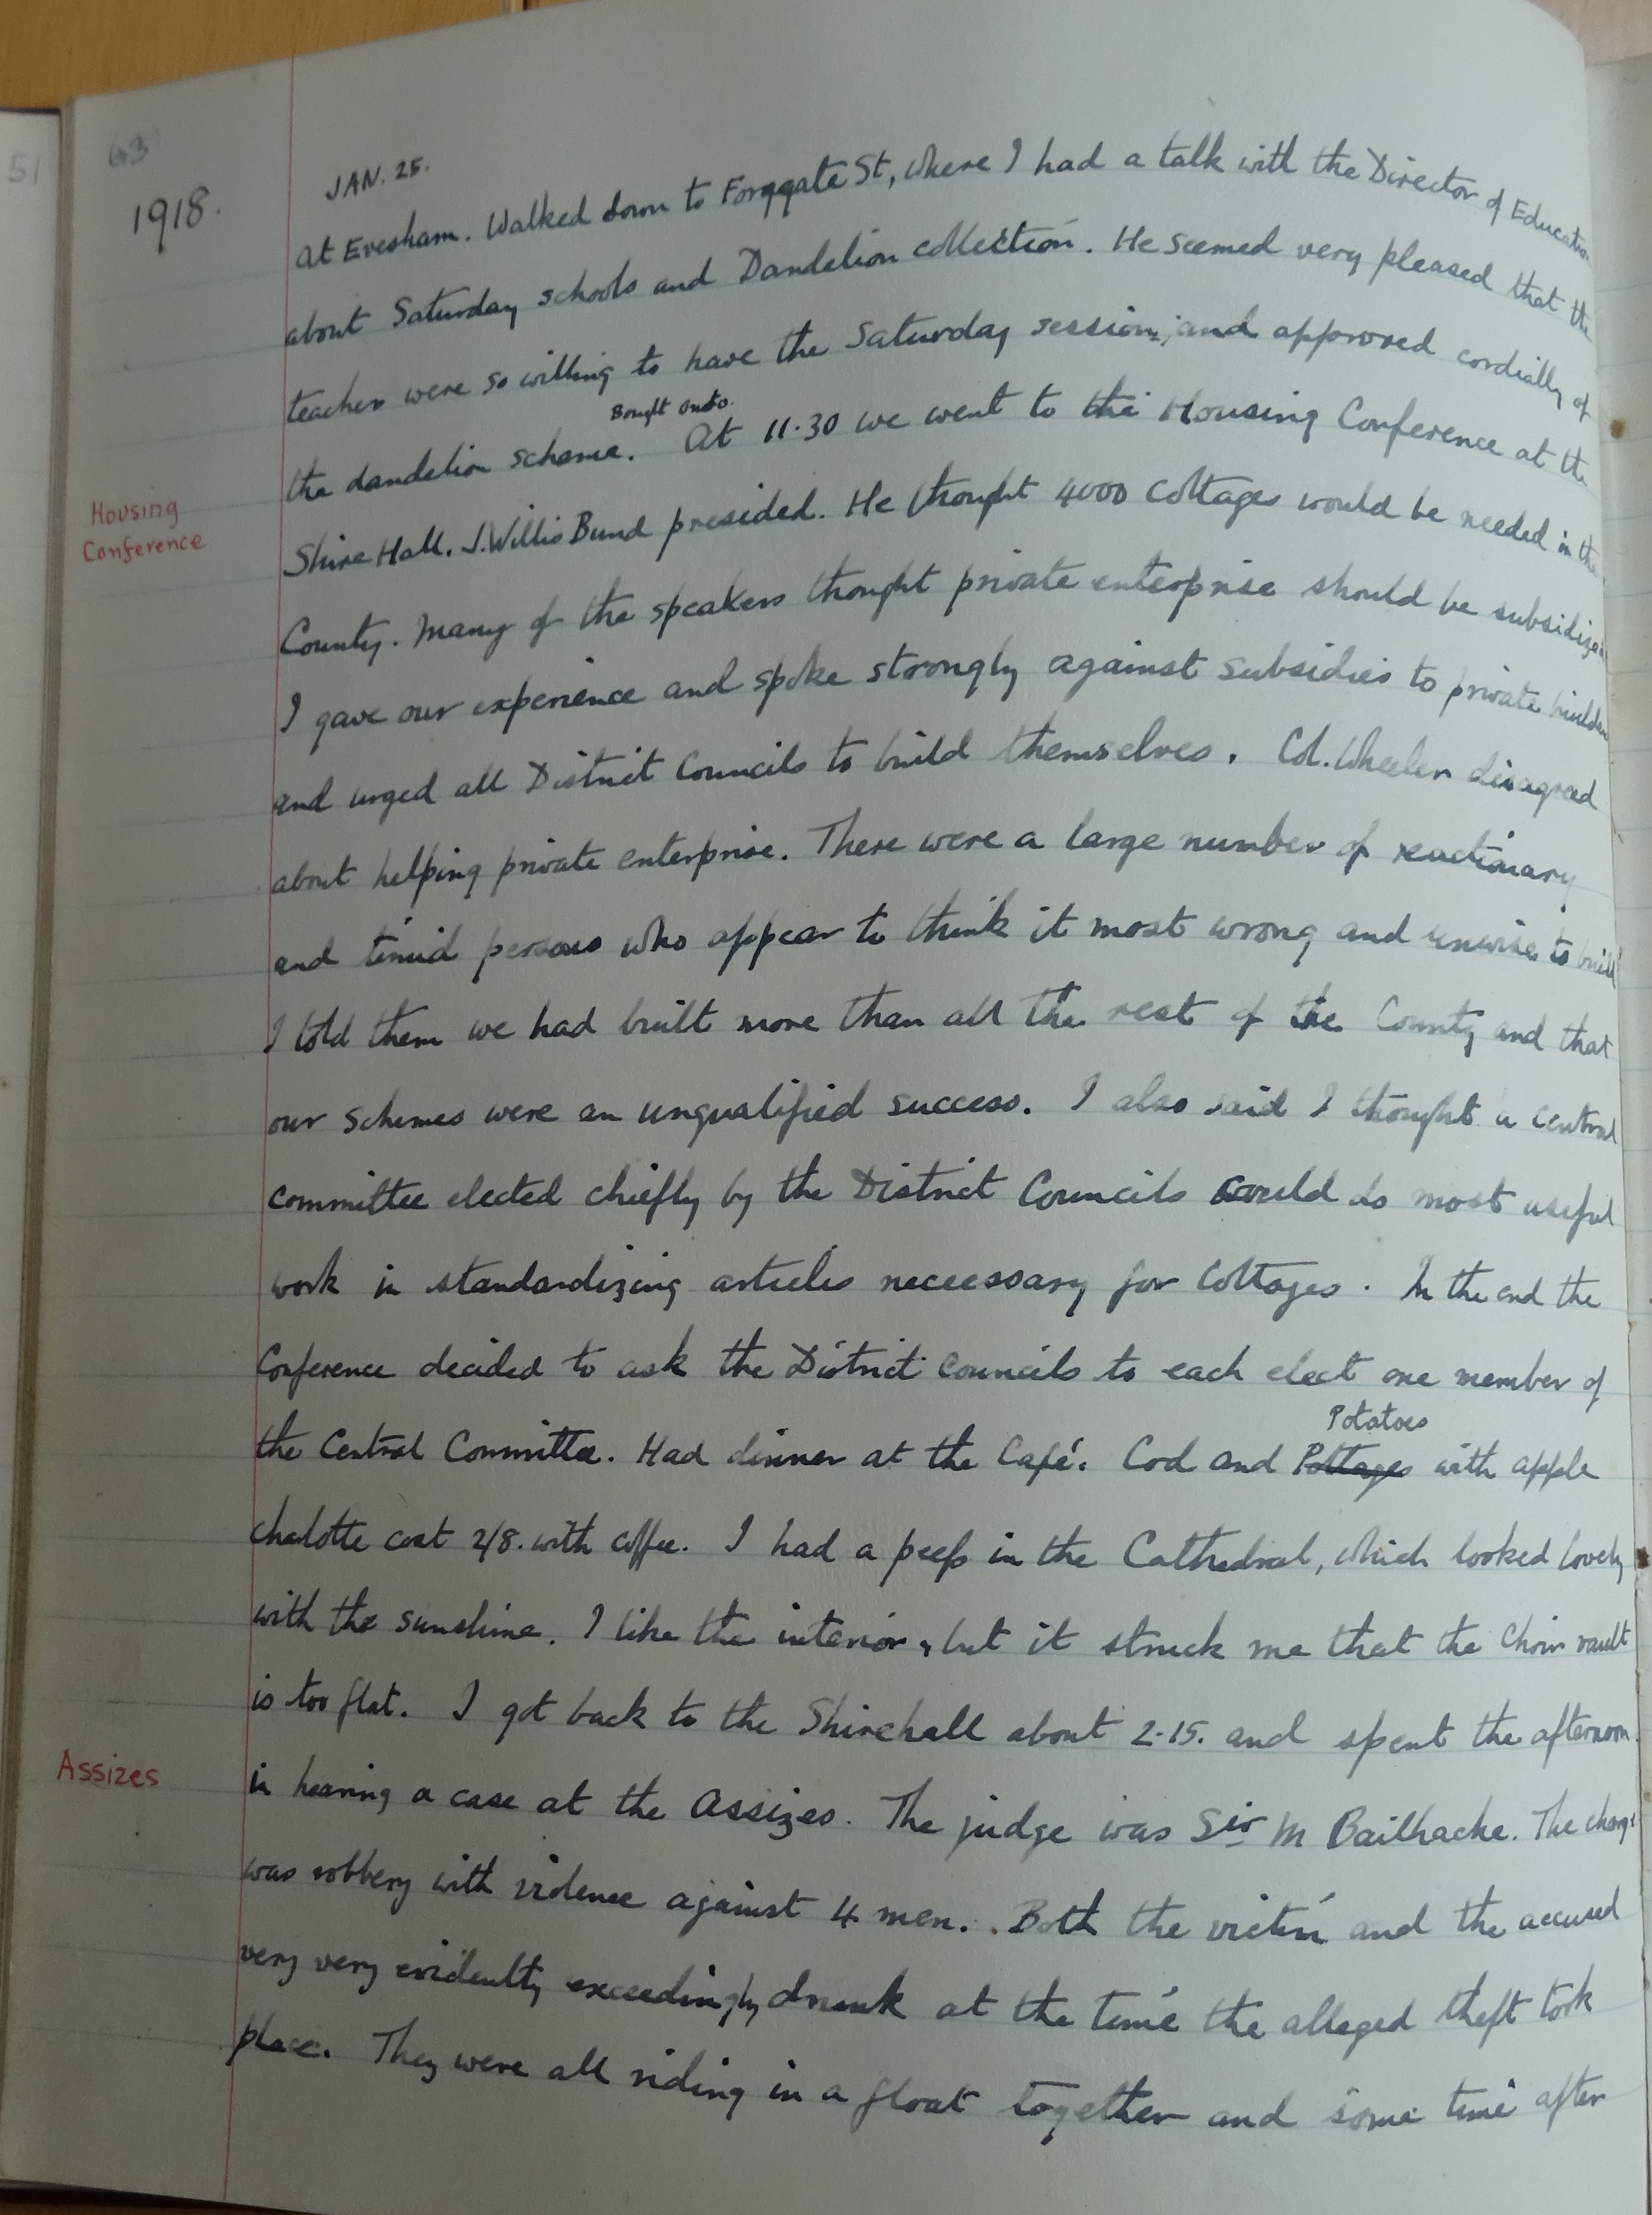 51
63
1918.
JAN. 25.
at Evesham. Walked down to Foregate St, where I had a talk with the Director of Education
about Saturday schools and Dandelion collection. He seemed very pleased that the
teachers were so willing to have the Saturday session, and approved cordially of
Bought
the dandelion scheme. At 11.30 we went to the Housing Conference at the
Housing
Conference
Shire Hall. J. Willis Bund presided. He thought 4000 cottages would be needed in the
County. Many of the speakers thought private enterprise should be subsidized
I gave our experience and spoke strongly against subsidies to private builders
and urged all District Councils to build themselves. Col. Wheeler disagreed
about helping private enterprise. There were a large number of reactionary
and timid persons who appear to think it most wrong and unwise to build
I told them we had built more than all the rest of the County and that
our schemes were an unqualified success. I also said I thought a central
committee elected chiefly by the District Councils could do most useful
work in standardizing articles neccessary for Cottages. In the end the
Conference decided to ask the District Councils to each elect one member of
Potatoes
the Central Committee. Had dinner at the Café. Cod and Pottages with apple
charlotte cost 2/8. with coffee. I had a peep in the Cathedral, which looked lovely
with the sunshine. I like the interior, but it struck me that the Choir vault
is too flat. I got back to the Shirehall about 2.15. and spent the afternoon
Assizes
in hearing a case at the Assizes. The judge was Sir M Bailhache. The charge
was robbery with violence against 4 men. Both the victim and the accused
very very evidently exceedingly drunk at the time the alleged theft took
place. They were all riding in a float together and some time after